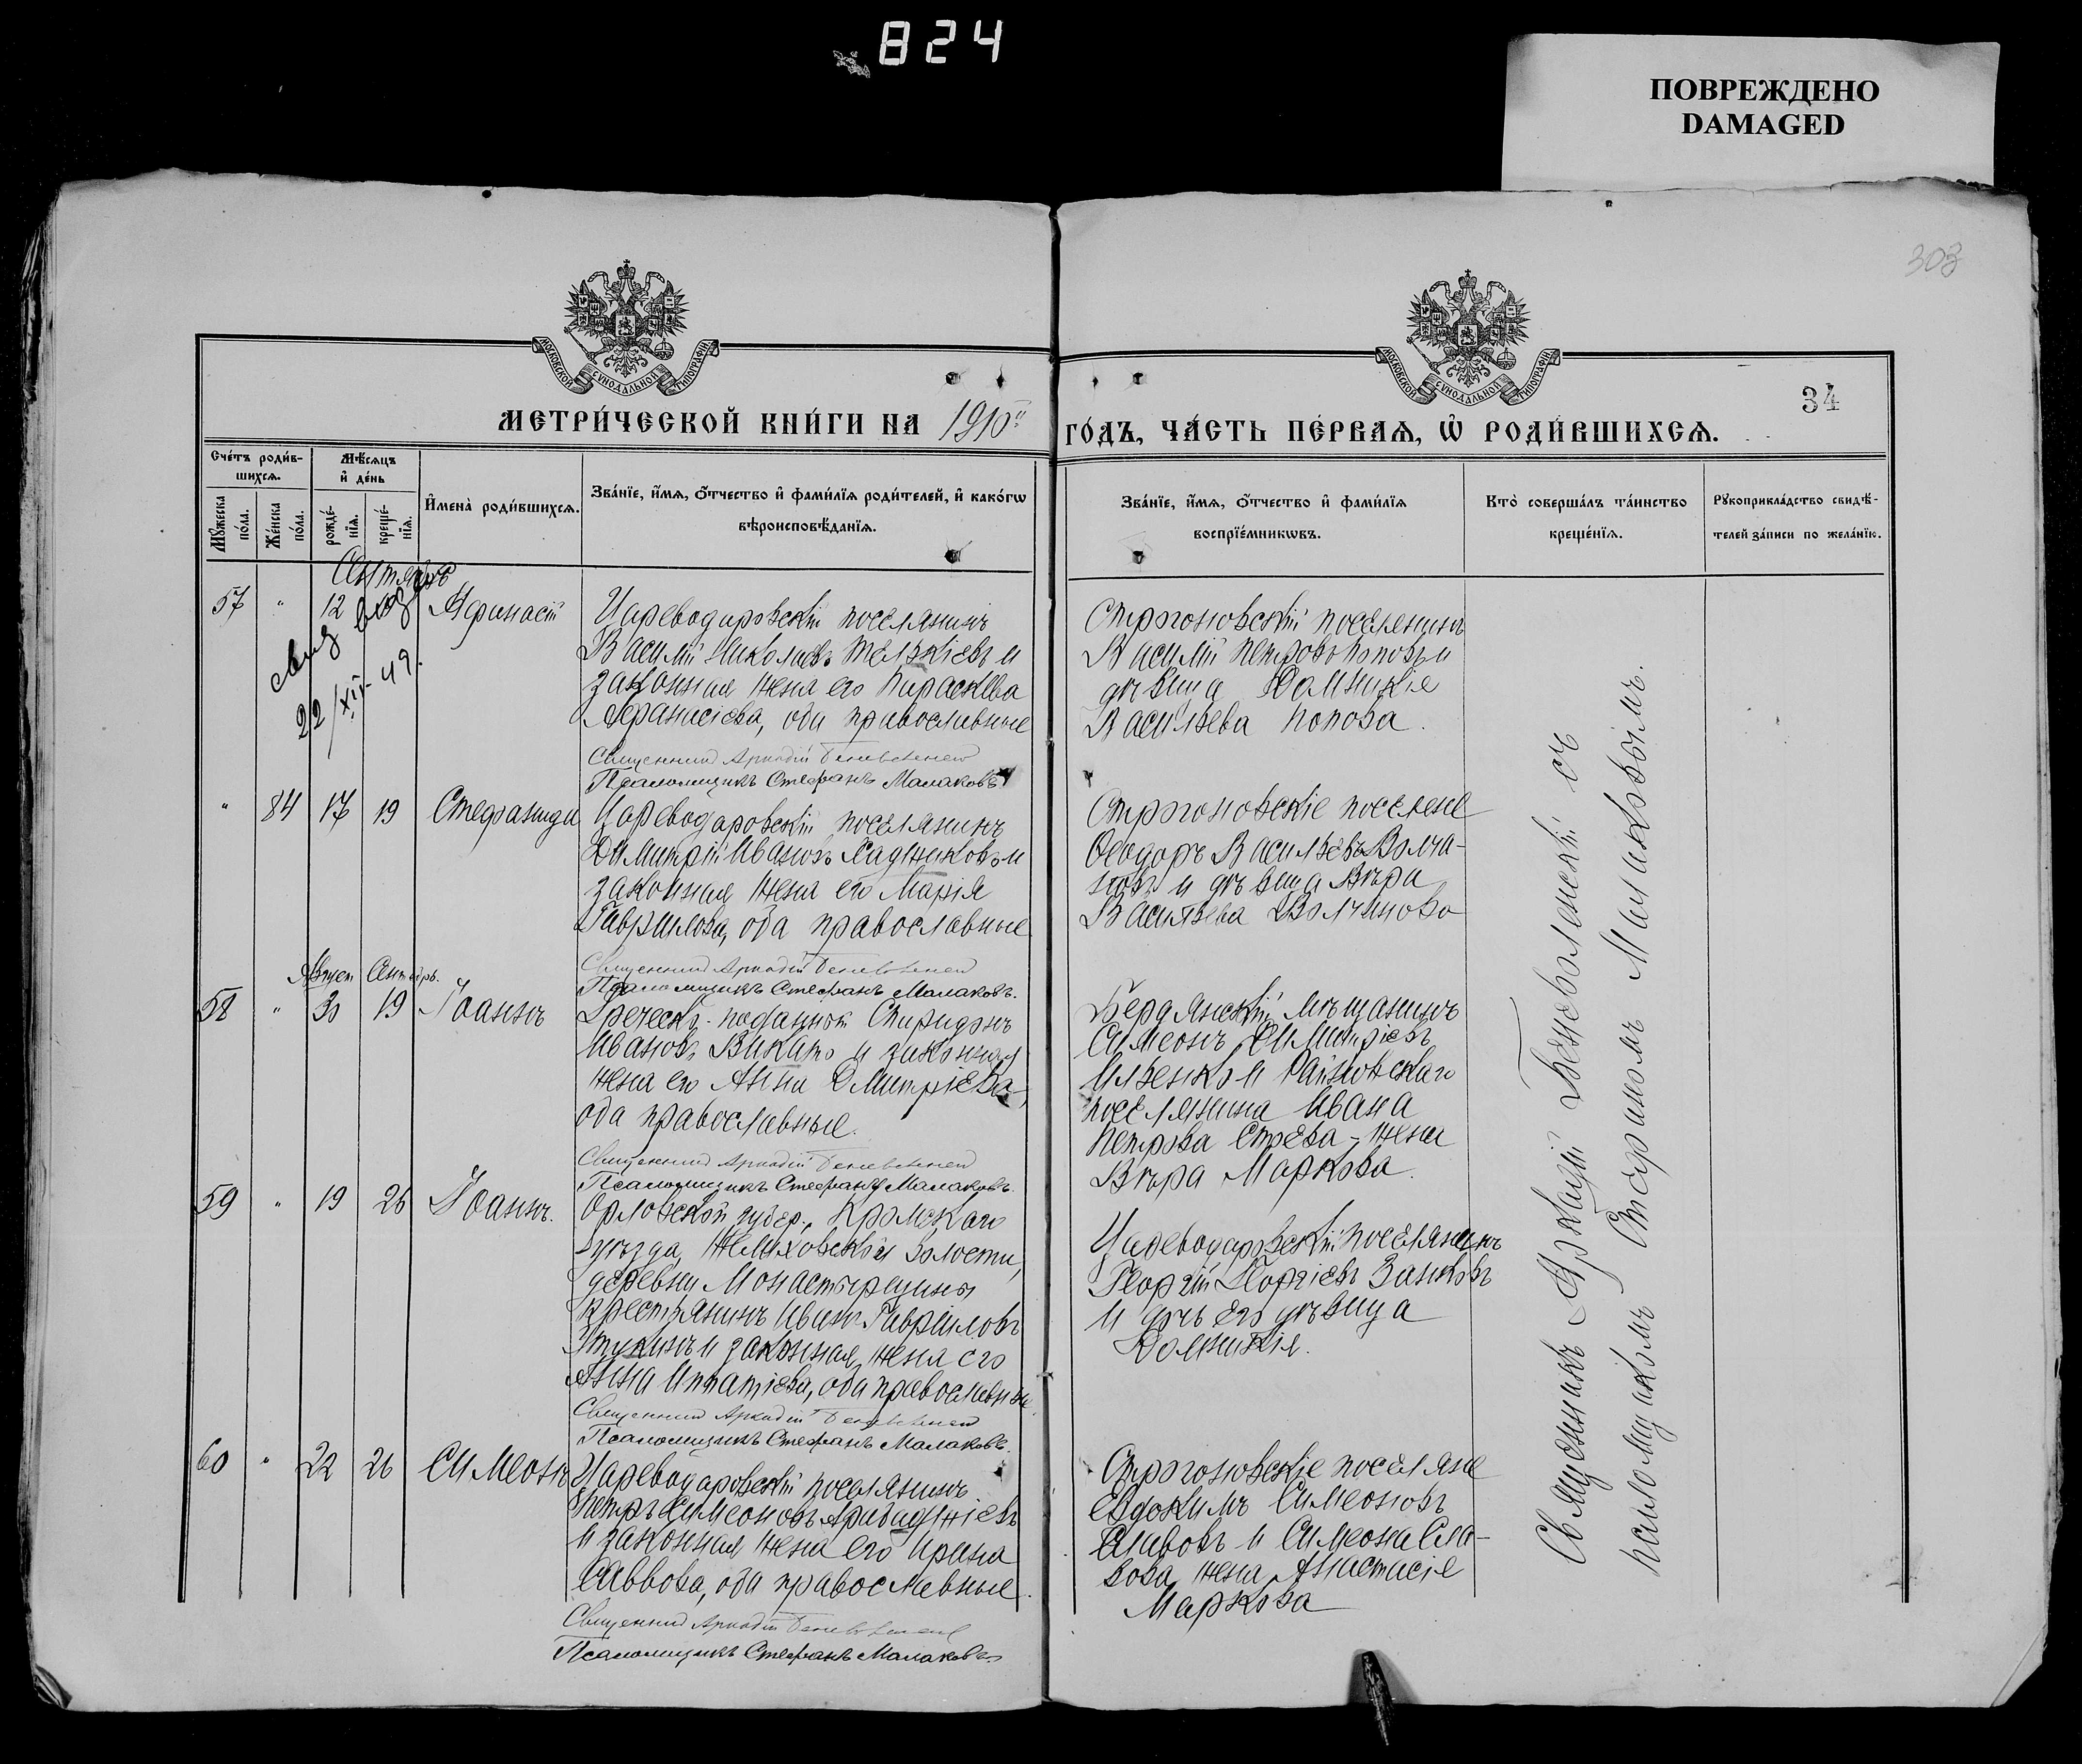 824
ПОВРЕЖДЕНО
DAMAGED
303
34
МОСКОВСКОЙ СУНОДАЛЬНОЙ ТИПОГРАФІИ
МОСКОВСКОЙ СУНОДАЛЬНОЙ ТИПОГРАФІИ
МЕТРИ́ЧЕСКОЙ КНИ́ГИ НА 1910й
ГО́ДЪ, ЧА́СТЬ ПЕ́РВАѦ, Ѡ҆ РОДИ́ВШИХСѦ.
Сче́тъ роди́в-
шихсѧ.
Мѣ́сѧцъ
и҆ де́нь
Мꙋ́жеска по́ла.
Же́нска по́ла.
рожде́-
нїѧ.
креще́-
нїѧ.
И҆мена̀ роди́вшихсѧ.
Зва́нїе, и҆́мѧ, ѻ҆́тчество и҆ фами́лїѧ роди́телей, и҆ како́гѡ
вѣроисповѣ́данїѧ.
Зва́нїе, и҆́мѧ, ѻ҆́тчество и҆ фами́лїѧ
воспрїе́мникѡвъ.
Кто̀ соверша́лъ та́инство
креще́нїѧ.
Рꙋкоприкла́дство свидѣ́-
телей за́писи по жела́нїю.
Сентябрь
57 " 12 Афанасій
свид
22/XII-49.
Цареводаровскій поселянинъ
Василій Николаевъ Тельжіевъ и
законная жена его Параскева
Афанасіева, оба православные
Священникъ Аркадій Беневоленскій
Псаломщикъ Стефанъ Малаковъ
Строгоновскій поселянинъ
Василій Петровъ Поповъ и
дѣвица Домникія
Васильева Попова.
" 84 17 19 Стефанида
Цареводаровскій поселянинъ
Димитрій Ивановъ Саджиковъ и
законная жена его Марія
Гаврилова, оба православные.
Священникъ Аркадій Беневоленскій
Псаломщикъ Стефанъ Малаковъ.
Строгоновскіе поселяне
Ѳеодоръ Васильевъ Волча-
новъ и дѣвица Вѣра
Васильева Волчанова
Август Сентябрь.
58 " 30 19 Іоаннъ
Греческ. подданный Спиридонъ
Ивановъ Викато и законная
жена его Анна Дмитріева,
оба православные.
Священникъ Аркадій Беневоленскій
Псаломщикъ Стефанъ Малаковъ.
Бердянскій мѣщанинъ
Симеонъ Димитріевъ
Ильенко и Райновскаго
поселянина Ивана
Петрова Стрева - жена
Вѣра Маркова.
59 " 19 26 Іоаннъ.
Орловской губер., Кромскаго
уѣзда, волости,
деревни Монастырщины
крестьянинъ Иванъ Гавриловъ
и законная жена его
Анна Ипатіева, оба православные.
Священникъ Аркадій Беневоленскій
Псаломщикъ Стефанъ Малаковъ.
Цареводаровскій поселянинъ
Георгій Георгіевъ Занковъ
и дочь его дѣвица
Домникія.
60 " 22 26 Симеонъ
Цареводаровскій поселянинъ
Петръ Симеоновъ Арабаджіевъ
и законная жена его Ирина
Саввова, оба православные.
Священникъ Аркадій Беневоленскій
Псаломщикъ Стефанъ Малаковъ
Строгоновскіе поселяне
Евдокимъ Симеоновъ
Сливовъ и Симеона Сли-
вова жена Анастасія
Маркова
Священникъ Аркадій Беневоленскій съ
псаломщикомъ Стефаномъ Малаковымъ.